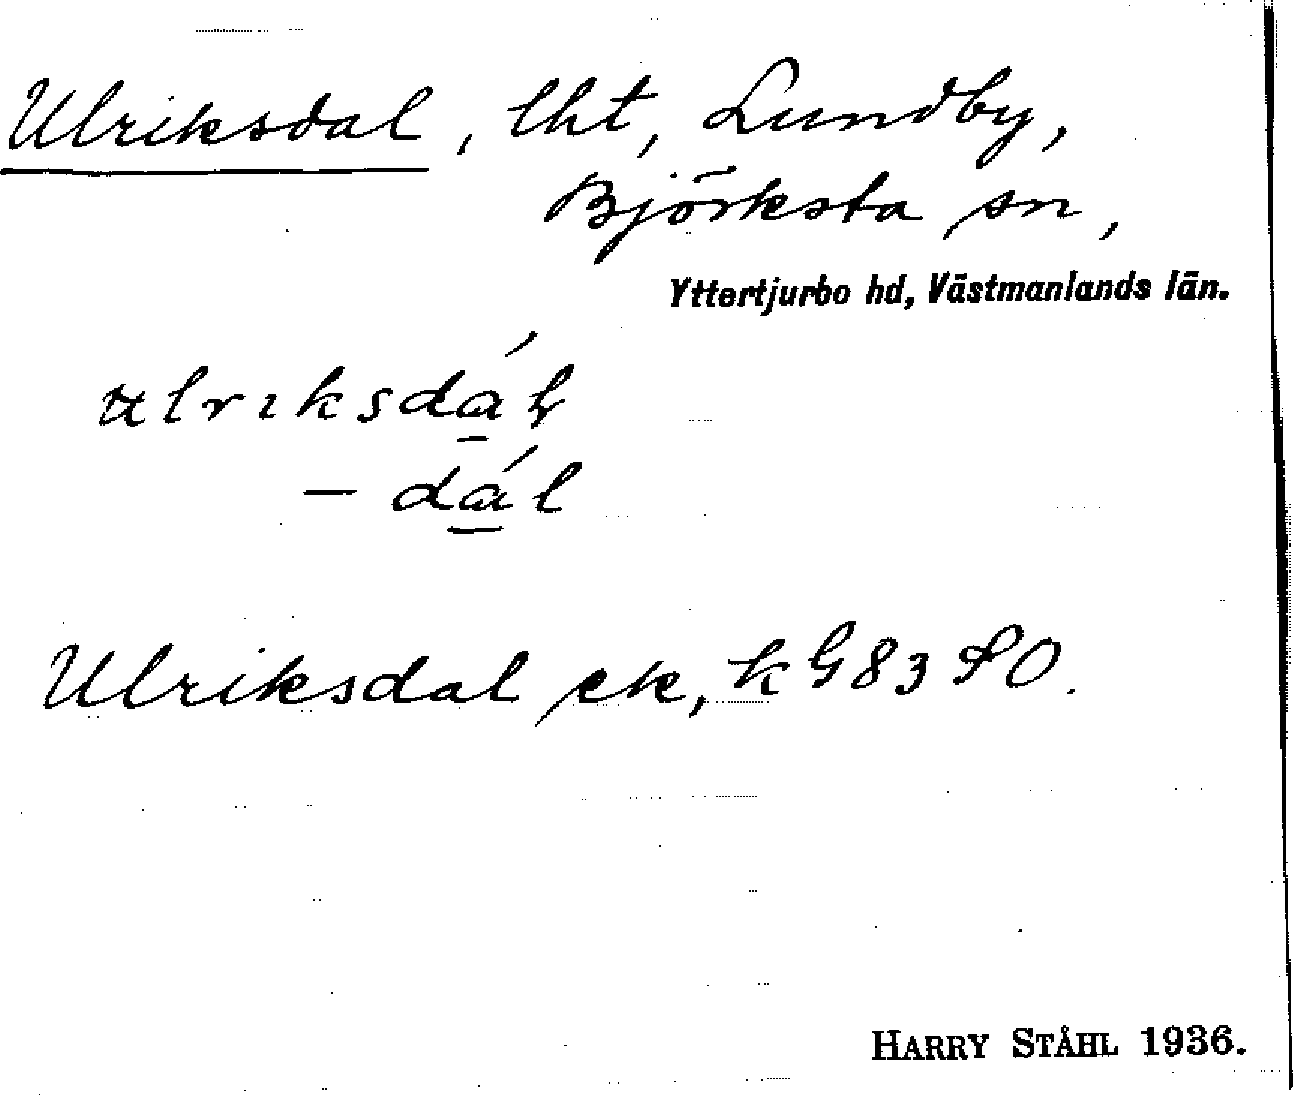 Ulriksdal, lht, Lundby,
Björksta sn,
Yttertjurbo hd, Västmanlands län.
ulrıksdál
– dál
Ulriksdal ek, k G83 SO.
HARRY STÅHL 1936.